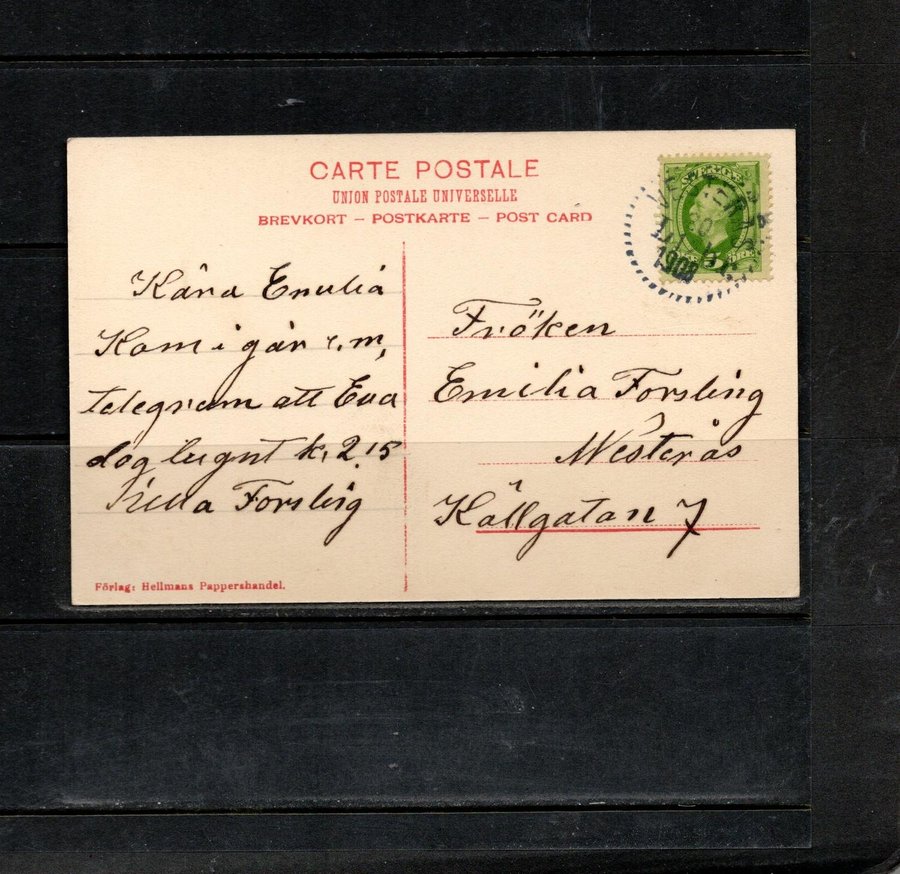 CARTE POSTALE
UNION POSTALE UNIVERSELLE
BREVKORT – POSTKARTE – POST CARD
SVERIGE
1908
Kära Emilia
Kom i går e.m,
telegram att Eva
dog lugnt k, 2,15
Forsling
Fröken
Emilia Forsling
Westerås
Källgatan 7
Förlag: Hellmans Pappershandel.